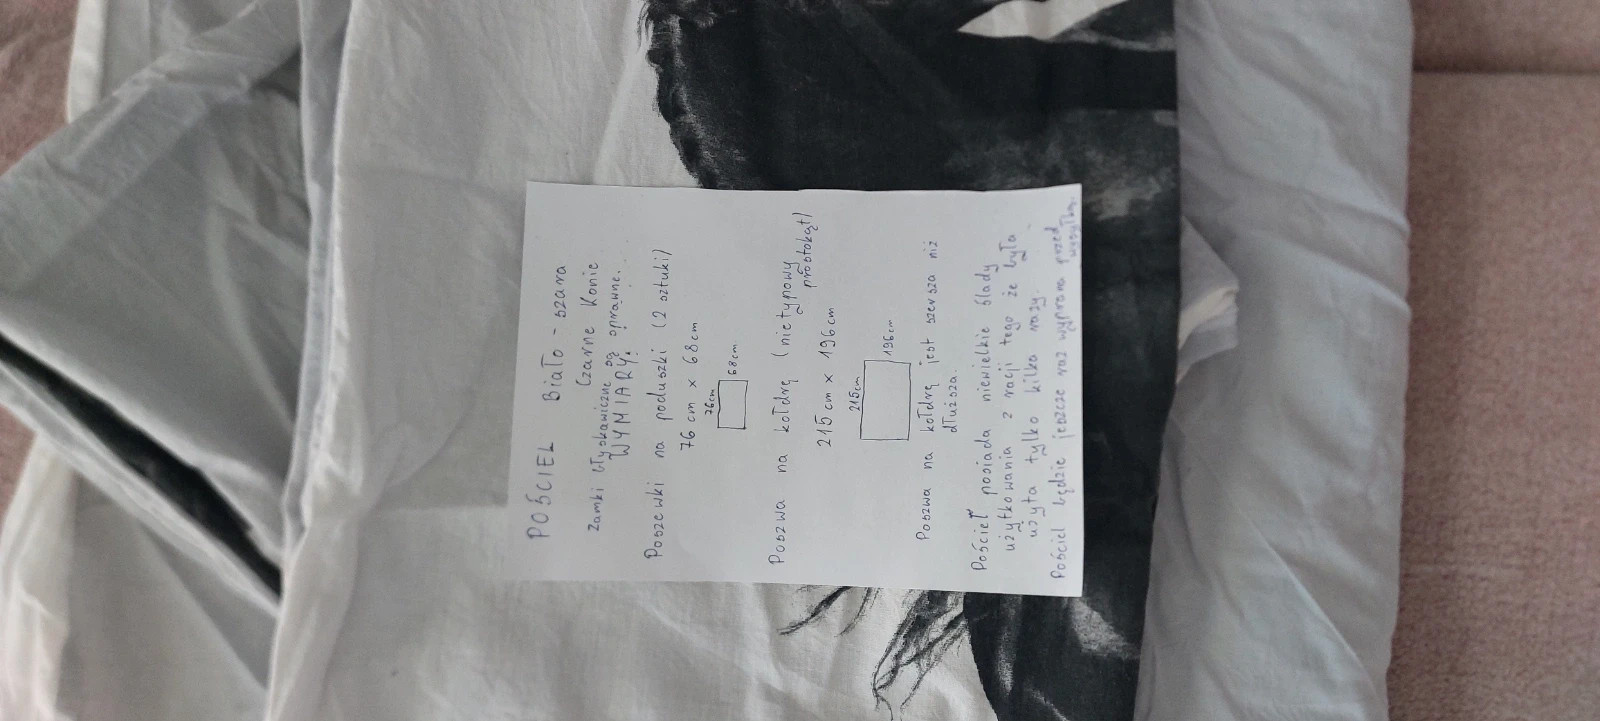 POŚCIEL BIAŁO - szara
Czarne Konie
Zamki błyskawiczne są sprawne.
WYMIARY:
Poszewki na poduszki (2 sztuki)
76 cm x 68 cm
76cm
68cm
Poszwa na kołdrę (nietypowy
prostokąt)
215 cm x 196 cm
215cm
196cm
Poszwa na kołdrę jest szersza niż
dłuższa.
Pościel posiada niewielkie ślady
użytkowania z racji tego że była
użyta tylko kilka razy.
Pościel będzie jeszcze raz wyprana przed
wysyłką.